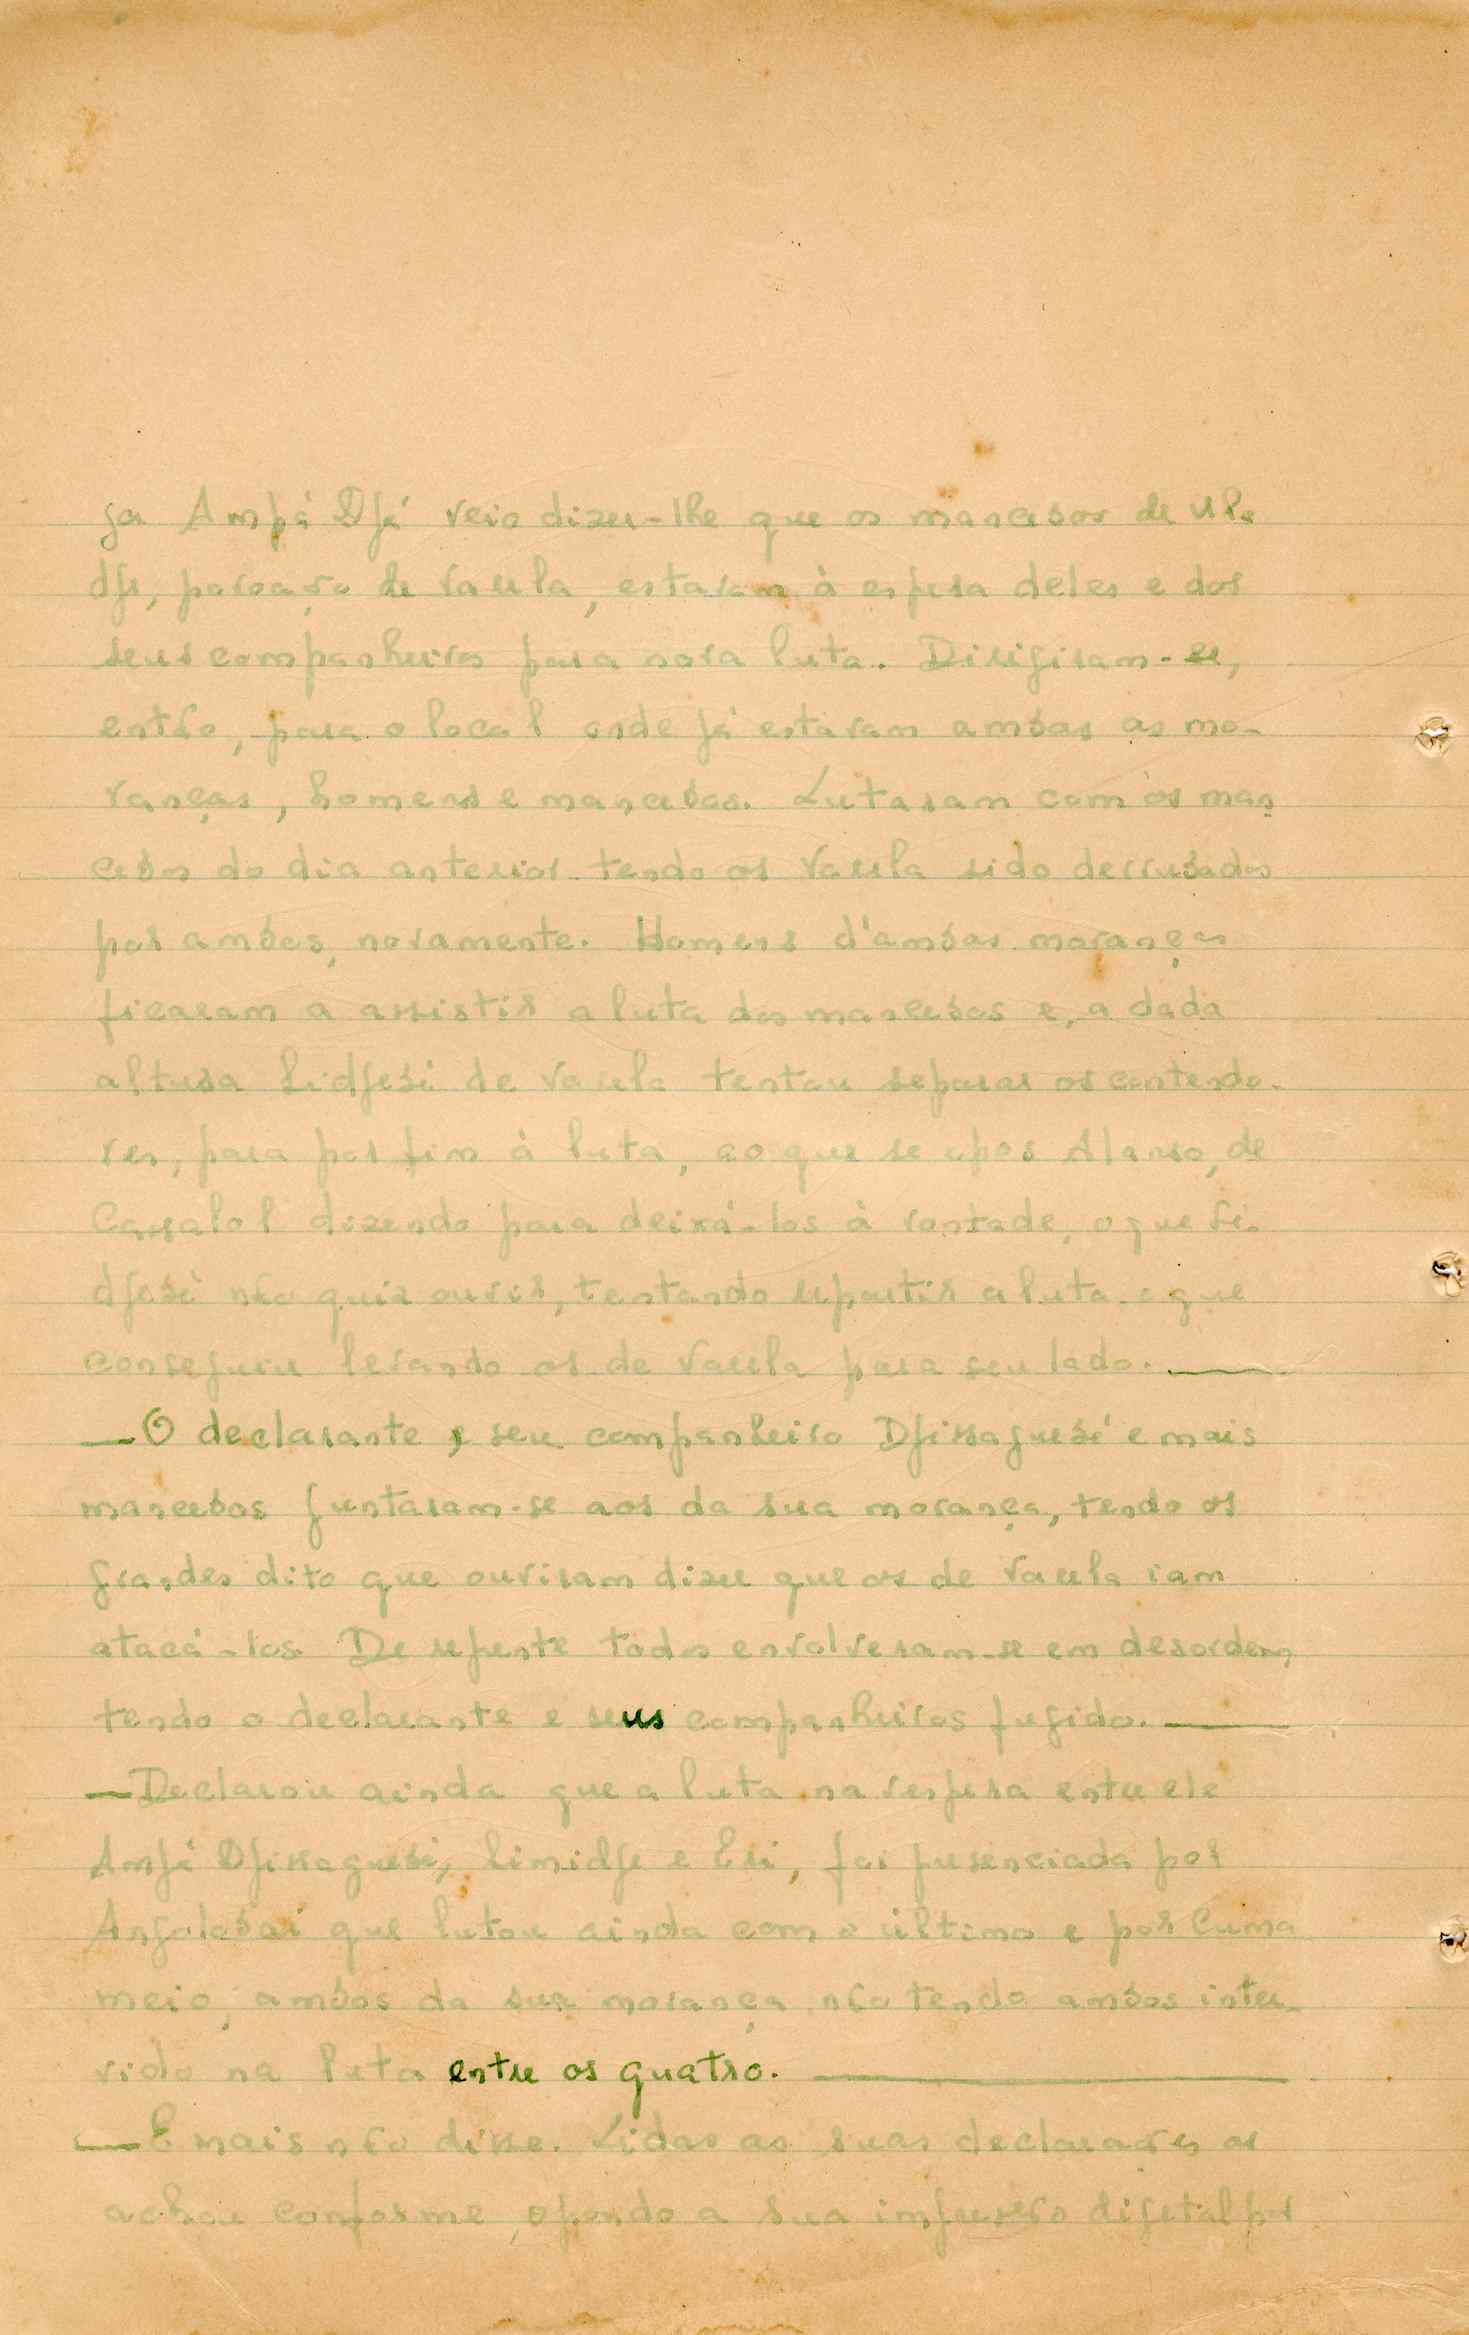 ga Ampá Djá veio dizer-lhe que os mancebos de Ule
dje, povoação de Varela, estavam à espera deles e dos
seus companheiros para nova luta. Dirigiram-se,
então, para o local onde já estavam ambas as mo-
ranças, homens e mancebos. Lutaram com os man
cebos do dia anterior tendo os Varela sido derrubados
por ambos, novamente. Homens d'ambas moranças
ficaram a assistir a luta dos mancebos e, a dada
altura Lidjebi de Varela tentou separar os contendo-
res, para por fim à luta, ao que se opos Alanso, de
Cassalol dizendo para deixá-los à vontade, o que Li-
djebi não quiz ouvir, tentando repartir a luta o que
conseguiu levando os de Varela para seu lado.
— O declarante e seu companheiro Djissaguebi e mais
mancebos juntaram-se aos da sua morança, tendo os
grandes dito que ouviram dizer que os de Varela iam
atacá-los. De repente todos envolveram-se em desordem,
tendo o declarante e seus companheiros fugido.
— Declarou ainda que a luta na vespera entre ele
Ampá Djissaguebi, Limidje e Eri, foi presenciada por
Angalobai que lutou ainda com o último e por Cuma
meio, ambos da sua morança não tendo ambos inter-
vido na luta entre os quatro.
— E mais não disse. Lidas as suas declarações as
achou conforme, opondo a sua impressão digetal por